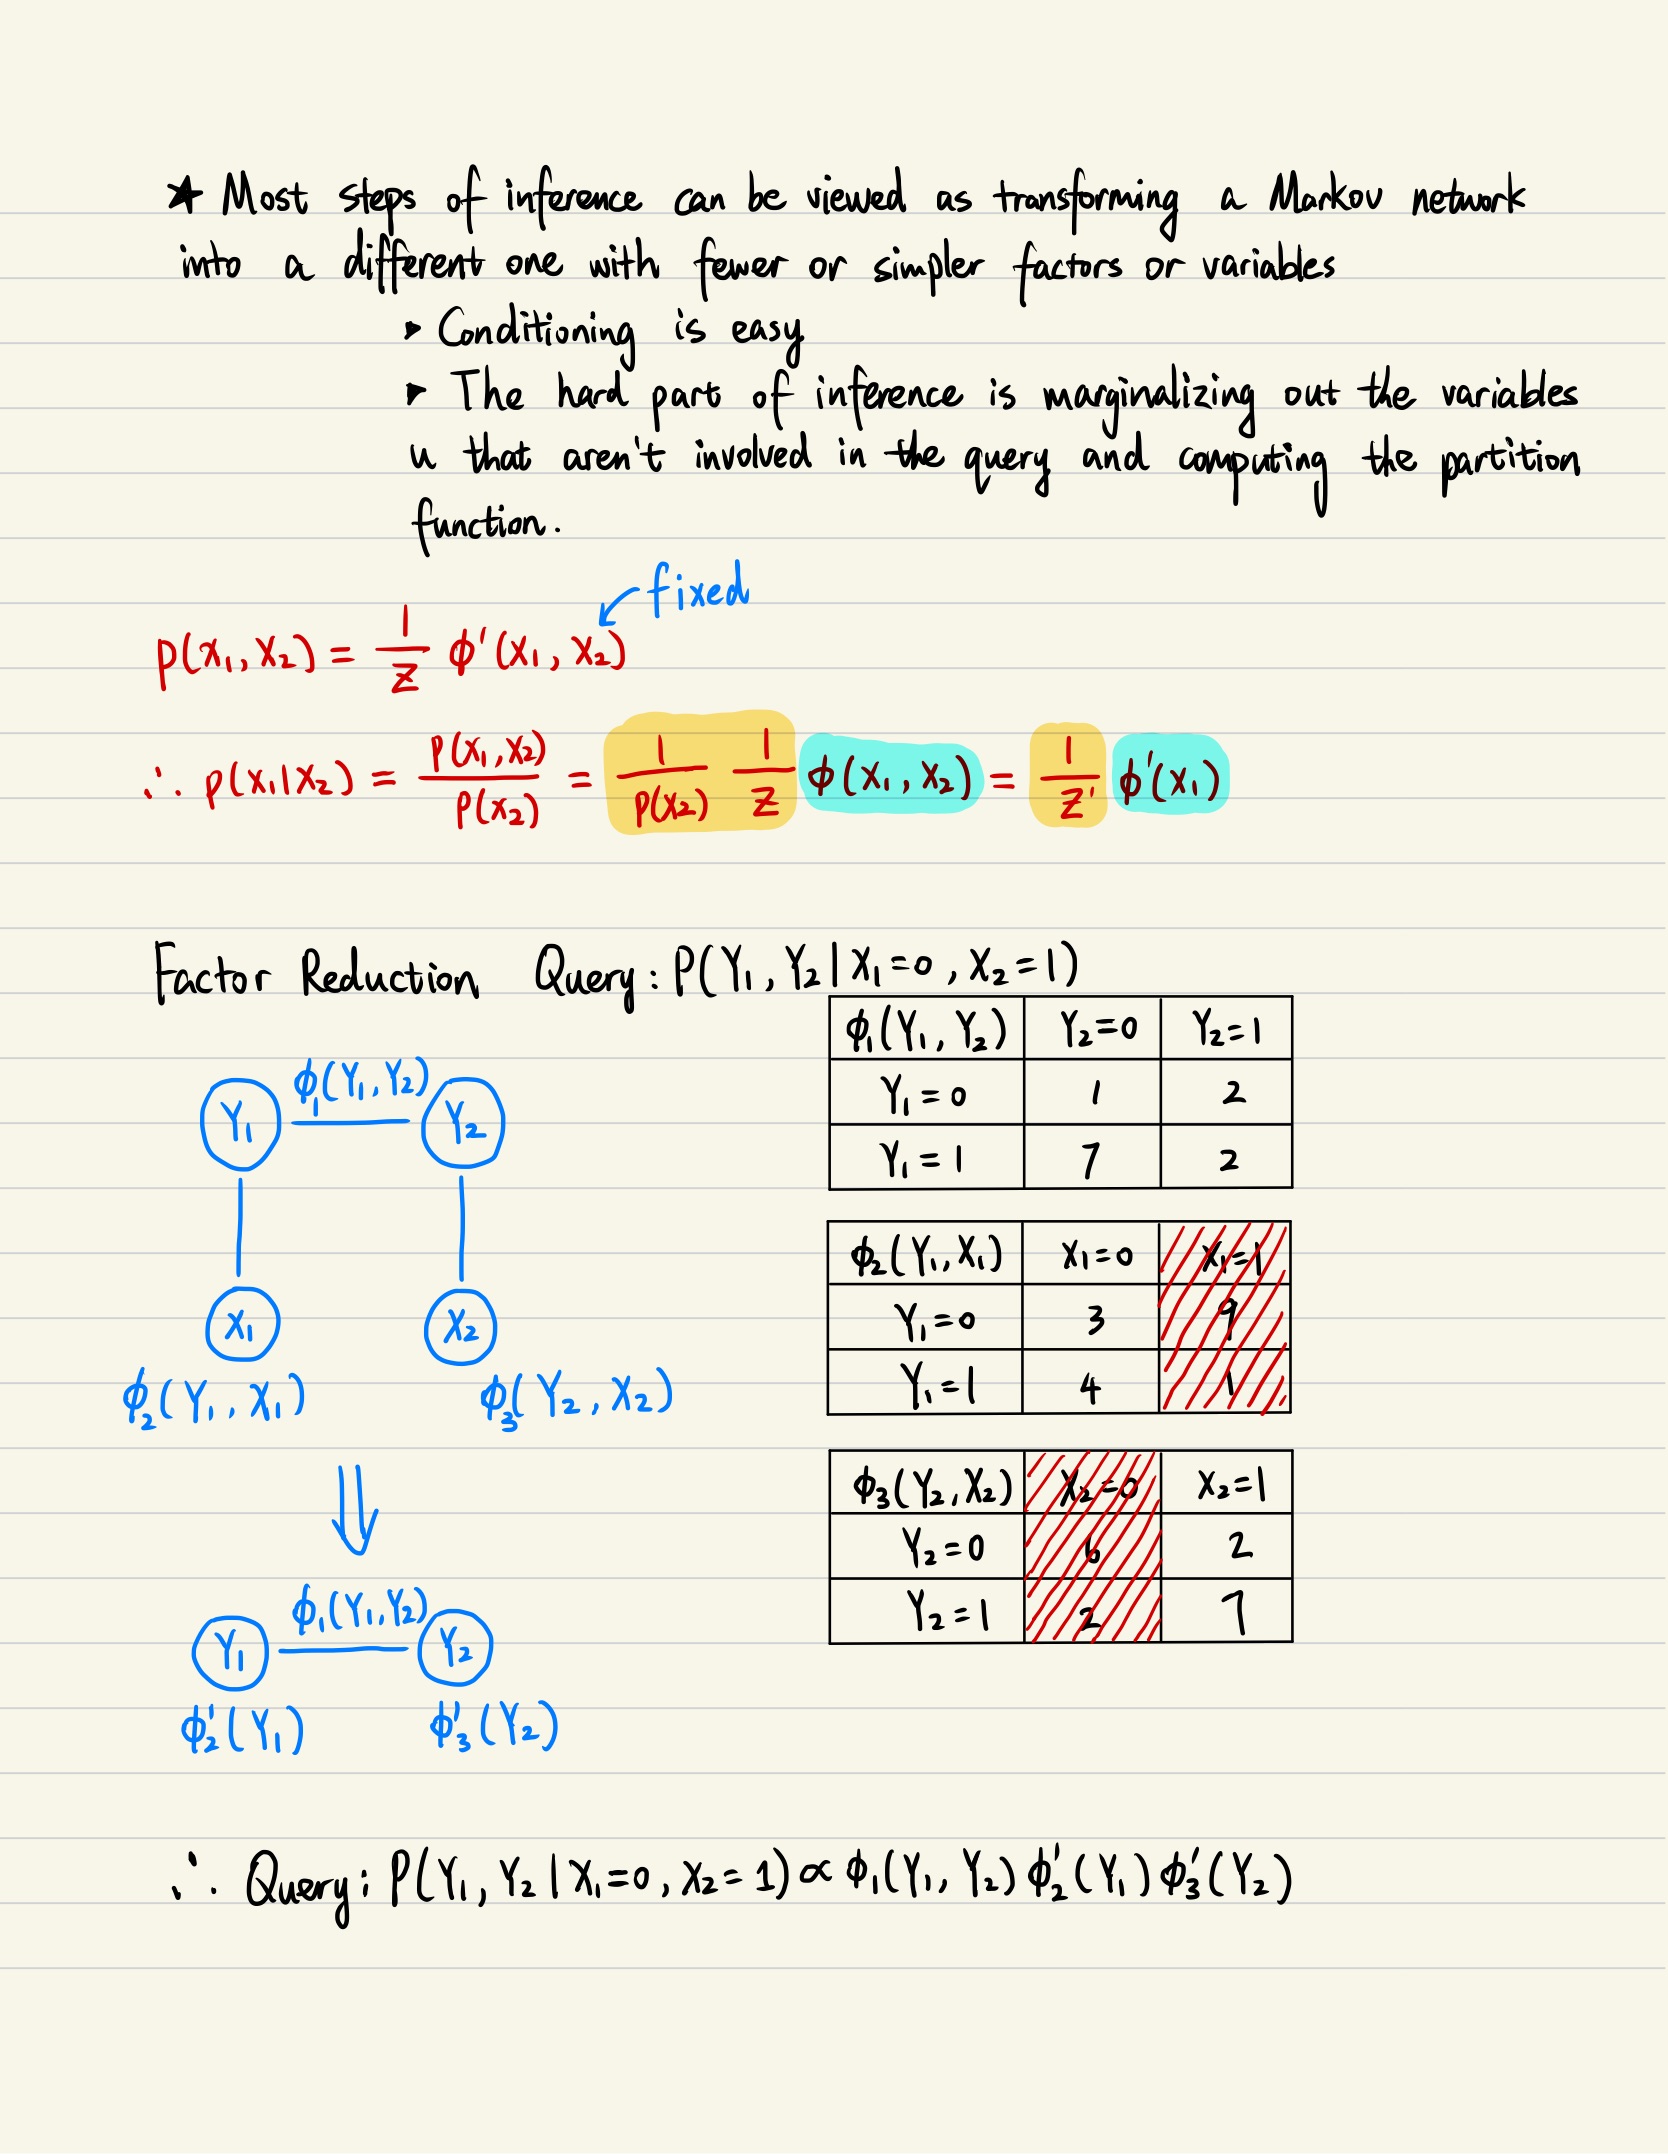 ★ Most steps of inference can be viewed as transforming a Markov network
into a different one with fewer or simpler factors or variables
▸ Conditioning is easy
▸ The hard part of inference is marginalizing out the variables
u that aren't involved in the query and computing the partition
function.
fixed
p(x₁, x₂) = 1/Z ϕ'(x₁, x₂)
∴ p(x₁|x₂) = p(x₁, x₂)/p(x₂) = 1/p(x₂) 1/Z ϕ(x₁, x₂) = 1/Z' ϕ'(x₁)
Factor Reduction Query: P(Y₁, Y₂ | X₁=0, X₂=1)
ϕ₁(Y₁, Y₂)
Y₁ Y₂
X₁ X₂
ϕ₂(Y₁, X₁) ϕ₃(Y₂, X₂)
⇓
ϕ₁(Y₁, Y₂)
Y₁ Y₂
ϕ₂'(Y₁) ϕ₃'(Y₂)
ϕ₁(Y₁, Y₂) Y₂=0 Y₂=1
Y₁=0 1 2
Y₁=1 7 2
ϕ₂(Y₁, X₁) X₁=0 X₁=1
Y₁=0 3 9
Y₁=1 4 1
ϕ₃(Y₂, X₂) X₂=0 X₂=1
Y₂=0 6 2
Y₂=1 2 7
∴ Query: P(Y₁, Y₂ | X₁=0, X₂=1) ∝ ϕ₁(Y₁, Y₂) ϕ₂'(Y₁) ϕ₃'(Y₂)